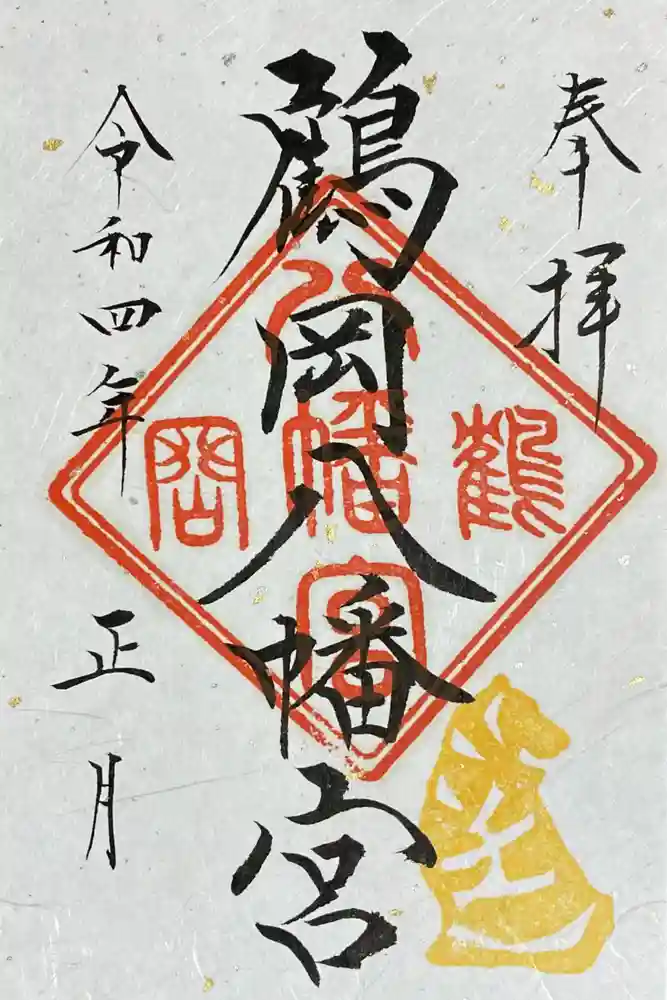 奉拝
鶴岡八幡宮
令和四年 正月
鶴
八幡宮
岡